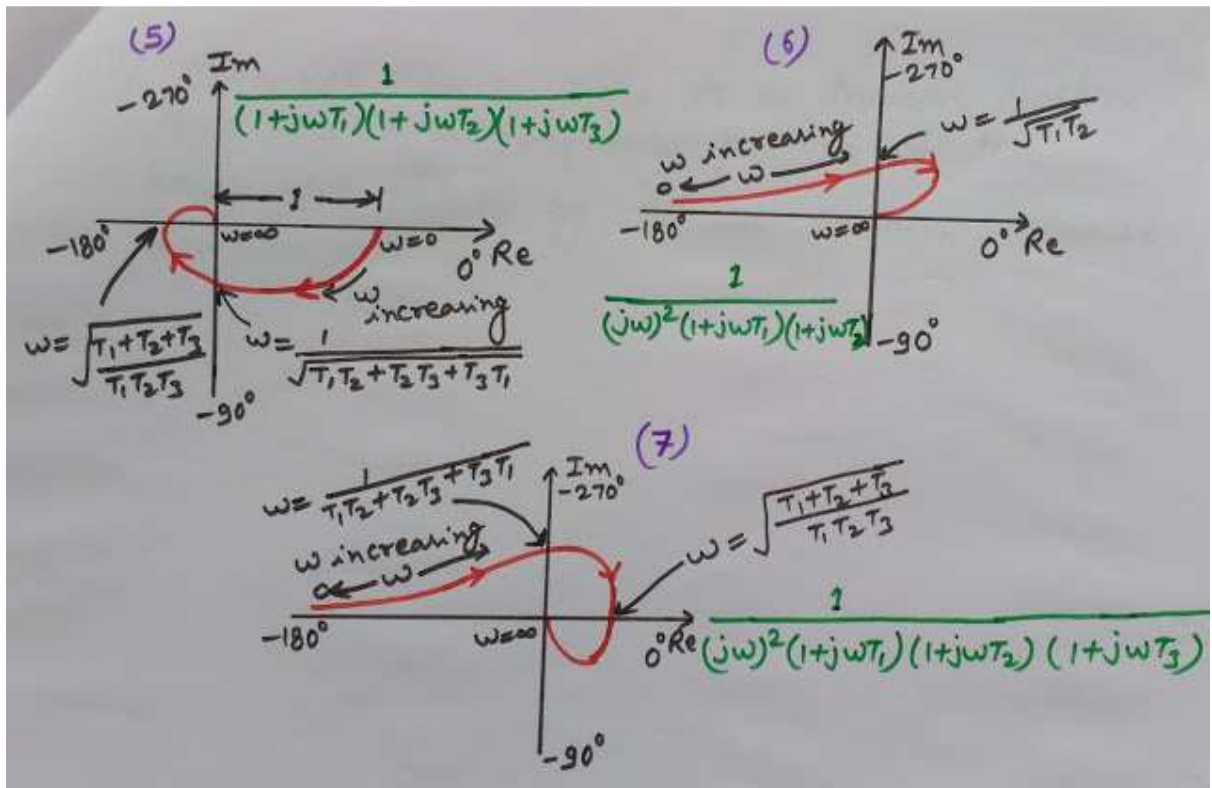 (5)
Im
-270°
1
(1+jωT₁)(1+jωT₂)(1+jωT₃)
1
-180°
ω=∞
ω=0
0° Re
ω increasing
ω=√
T₁+T₂+T₃
T₁T₂T₃
ω=
1
√T₁T₂+T₂T₃+T₃T₁
-90°
(6)
Im
-270°
ω=
1
√T₁T₂
ω increasing
0 ω
-180°
ω=∞
0° Re
1
(jω)²(1+jωT₁)(1+jωT₂)
-90°
(7)
Im
-270°
ω=
1
T₁T₂+T₂T₃+T₃T₁
ω=√
T₁+T₂+T₃
T₁T₂T₃
ω increasing
0 ω
-180°
ω=∞
0° Re
1
(jω)²(1+jωT₁)(1+jωT₂)(1+jωT₃)
-90°